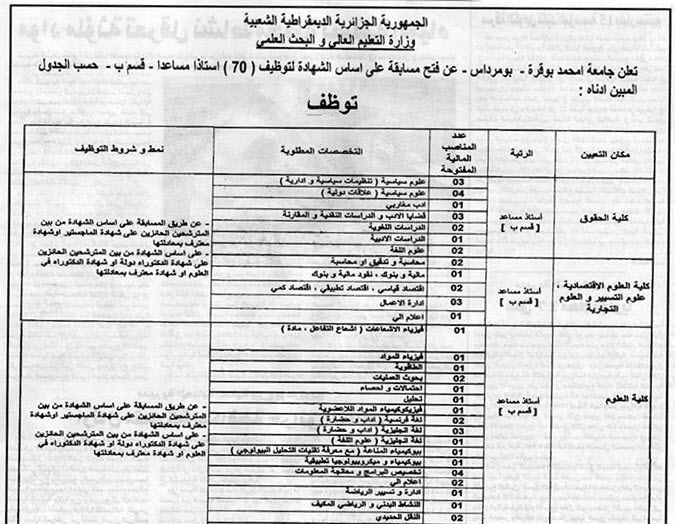 الجمهورية الجزائرية الديمقراطية الشعبية
وزارة التعليم العالي و البحث العلمي
تعلن جامعة امحمد بوقرة - بومرداس - عن فتح مسابقة على اساس الشهادة لتوظيف ( 70 ) استاذا مساعدا - قسم ب - حسب الجدول
المبين ادناه :
توظف
مكان التعيين | الرتبة | عدد المناصب المالية المفتوحة | التخصصات المطلوبة | نمط و شروط التوظيف
كلية الحقوق
أستاذ مساعد
[ قسم ب ]
03 علوم سياسية ( تنظيمات سياسية و ادارية )
04 علوم سياسية ( علاقات دولية )
01 ادب مغاربي
03 قضايا الادب و الدراسات النقدية و المقارنة
02 الدراسات اللغوية
01 الدراسات الادبية
02 علوم اللغة
- عن طريق المسابقة على اساس الشهادة من بين
المترشحين الحائزين على شهادة الماجستير اوشهادة
معترف بمعادلتها
- على اساس الشهادة من بين المترشحين الحائزين
على شهادة الدكتوراه دولة أو شهادة الدكتوراه في
العلوم او شهادة معترف بمعادلتها
كلية العلوم الاقتصادية ،
علوم التسيير و العلوم
التجارية
أستاذ مساعد
[ قسم ب ]
02 محاسبة و تدقيق او محاسبة
01 مالية و بنوك ، نقود مالية و بنوك
02 اقتصاد قياسي ، اقتصاد تطبيقي ، اقتصاد كمي
03 ادارة الاعمال
01 اعلام الي
كلية العلوم
أستاذ مساعد
[ قسم ب ]
01 فيزياء الاشعاعات ( اشعاع التفاعل ، مادة )
01 فيزياء المواد
01 الطاقوية
02 بحوث العمليات
01 احتمالات و احصاء
01 تحليل
01 فيزيكوكيمياء المواد اللاعضوية
02 لغة فرنسية ( اداب و حضارة )
03 لغة انجليزية ( اداب و حضارة )
01 لغة انجليزية ( علوم اللغة )
01 بيوكيمياء المناعة ( مع معرفة تقنيات التحليل البيولوجي )
01 بيوكيمياء و ميكروبيولوجيا تطبيقية
04 تخصيص البرامج و معالجة المعلومات
02 اعلام الي
01 ادارة و تسيير الرياضة
01 النشاط البدني و الرياضي المكيف
02 النقل الحديدي
- عن طريق المسابقة على اساس الشهادة من بين
المترشحين الحائزين على شهادة الماجستير اوشهادة
معترف بمعادلتها
- على اساس الشهادة من بين المترشحين الحائزين
على شهادة الدكتوراه دولة أو شهادة الدكتوراه في
العلوم او شهادة معترف بمعادلتها